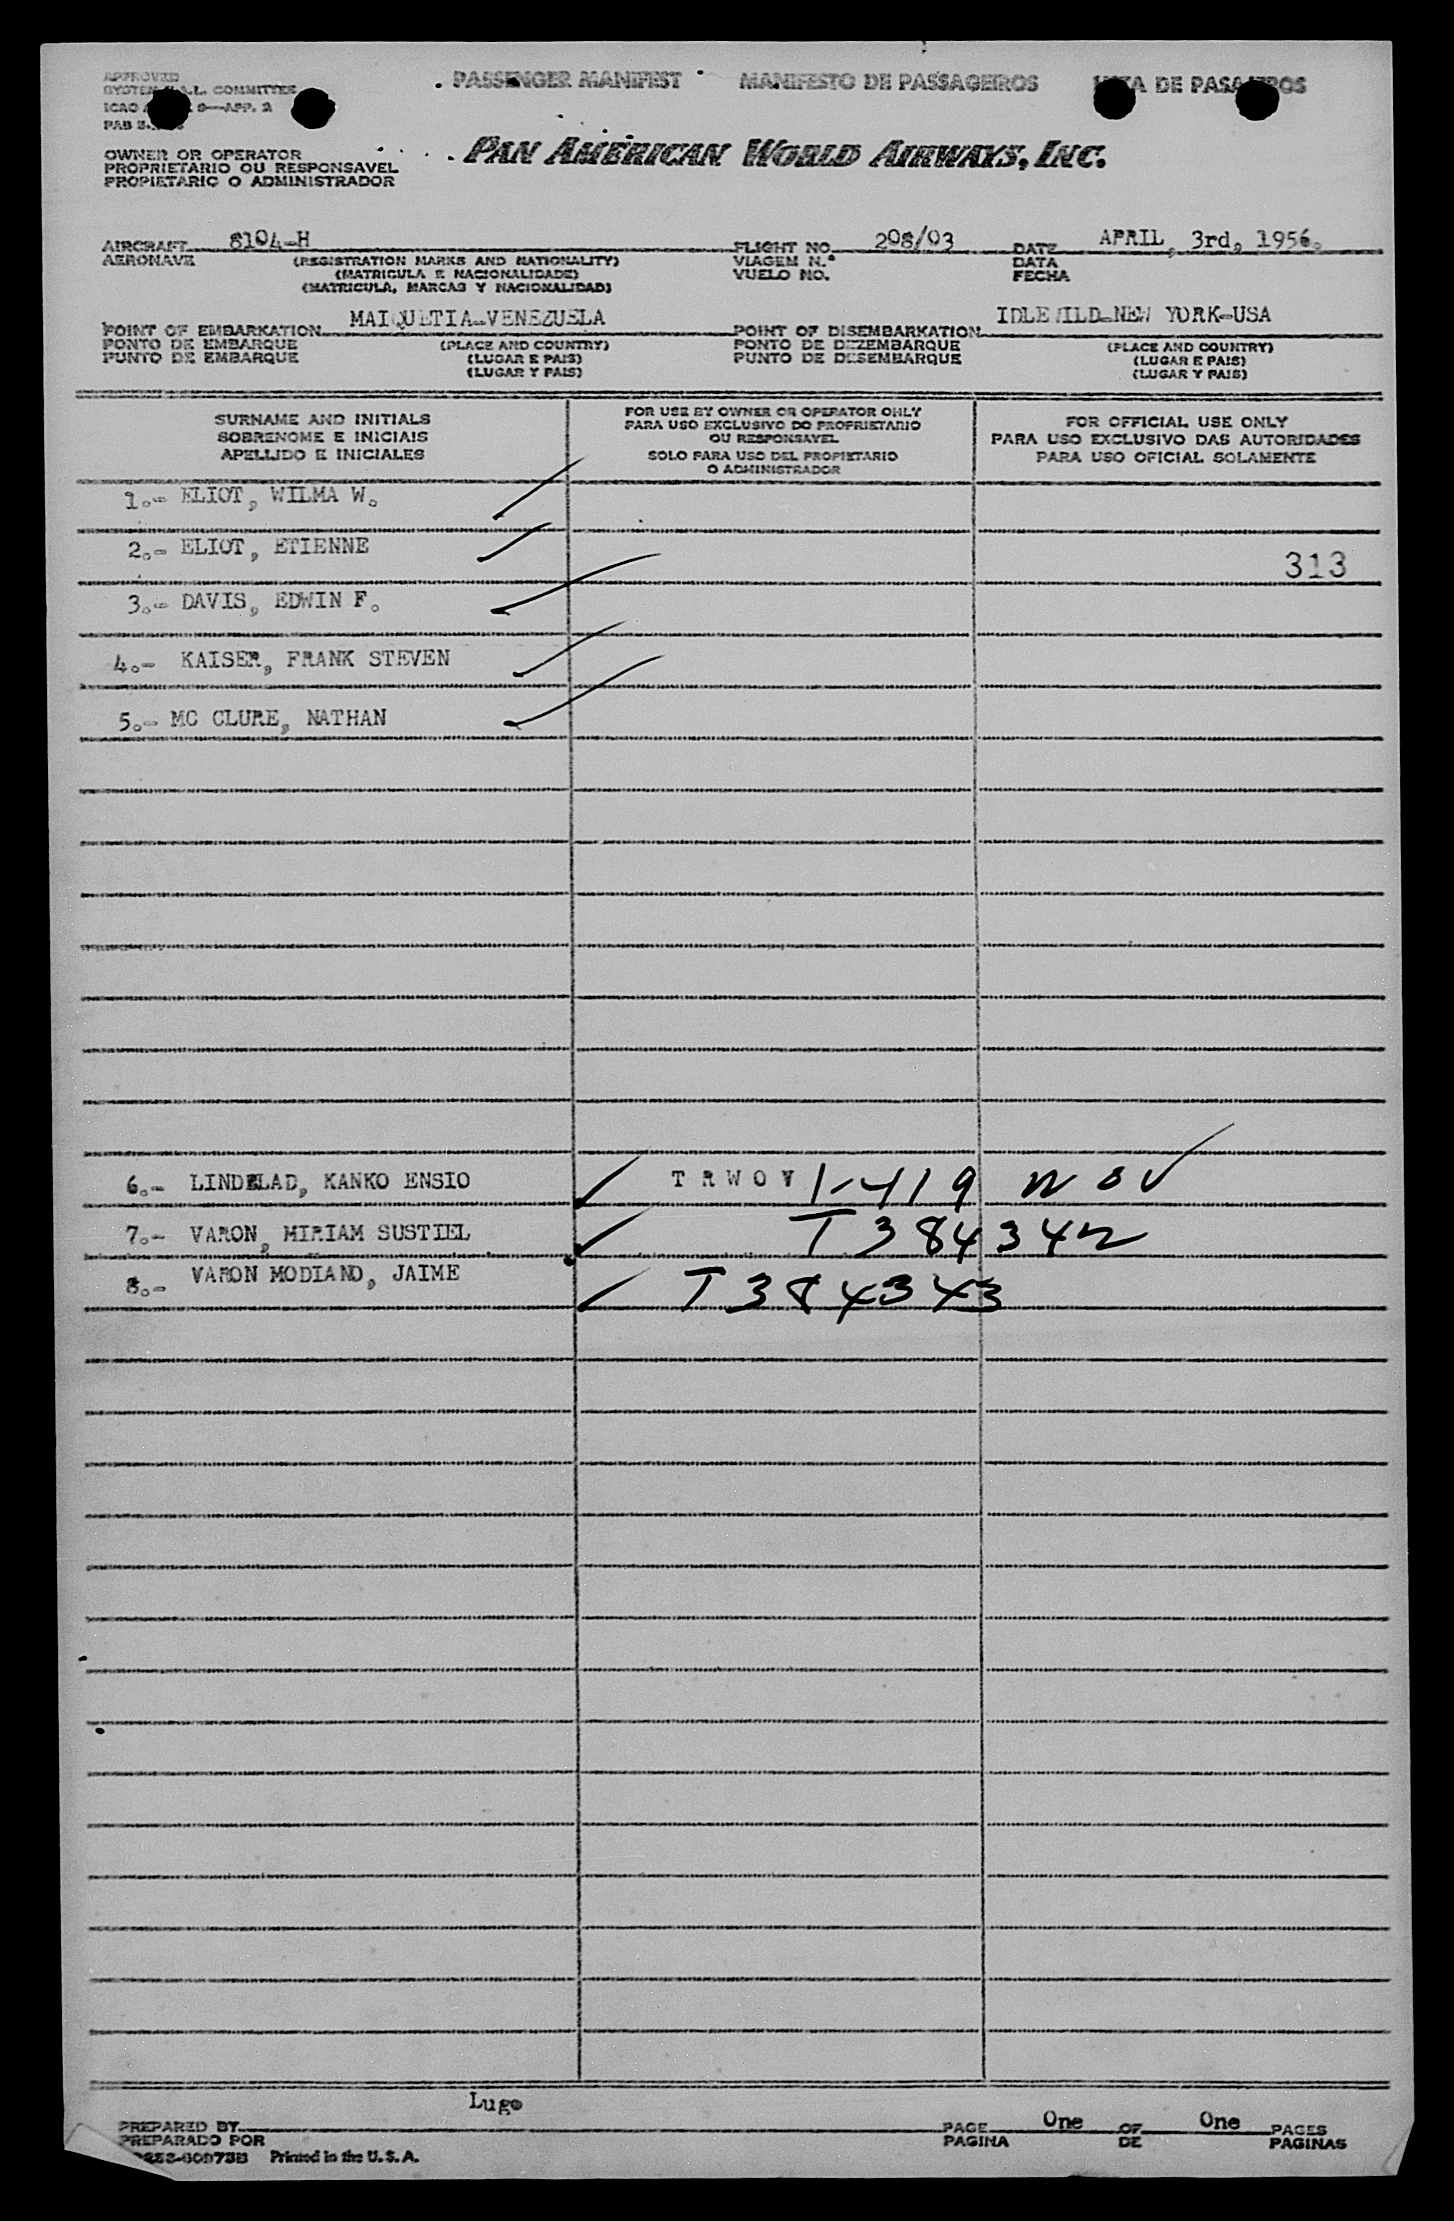 APPROVED
SYSTEM COMMITTEE
ICAO 9—APP. 2
PAB
PASSENGER MANIFEST MANIFESTO DE PASSAGEIROS LISTA DE PASAJEROS
OWNER OR OPERATOR
PROPRIETARIO OU RESPONSAVEL
PROPIETARIO O ADMINISTRADOR
PAN AMERICAN WORLD AIRWAYS, INC.
AIRCRAFT 8104-H FLIGHT NO. 208/03 DATE APRIL, 3rd, 1956.
AERONAVE (REGISTRATION MARKS AND NATIONALITY) VIAGEM N.º DATA
(MATRICULA E NACIONALIDADE) VUELO NO. FECHA
(MATRICULA, MARCAS Y NACIONALIDAD)
POINT OF EMBARKATION MAIQUETIA-VENEZUELA POINT OF DISEMBARKATION IDLEWILD-NEW YORK-USA
PONTO DE EMBARQUE (PLACE AND COUNTRY) PONTO DE DEZEMBARQUE (PLACE AND COUNTRY)
PUNTO DE EMBARQUE (LUGAR E PAIS) PUNTO DE DESEMBARQUE (LUGAR E PAIS)
(LUGAR Y PAIS) (LUGAR Y PAIS)
SURNAME AND INITIALS
SOBRENOME E INICIAIS
APELLIDO E INICIALES
FOR USE BY OWNER OR OPERATOR ONLY
PARA USO EXCLUSIVO DO PROPRIETARIO
OU RESPONSAVEL
SOLO PARA USO DEL PROPIETARIO
O ADMINISTRADOR
FOR OFFICIAL USE ONLY
PARA USO EXCLUSIVO DAS AUTORIDADES
PARA USO OFICIAL SOLAMENTE
1.- ELIOT, WILMA W.
2.- ELIOT, ETIENNE
313
3.- DAVIS, EDWIN F.
4.- KAISER, FRANK STEVEN
5.- MC CLURE, NATHAN
6.- LINDBLAD, KANKO ENSIO TRWOV 1-419 WOV
7.- VARON, MIRIAM SUSTIEL T384342
8.- VARON MODIANO, JAIME T384343
Lugo
PREPARED BY PAGE One OF One PAGES
PREPARADO POR PAGINA DE PAGINAS
Printed in the U.S.A.